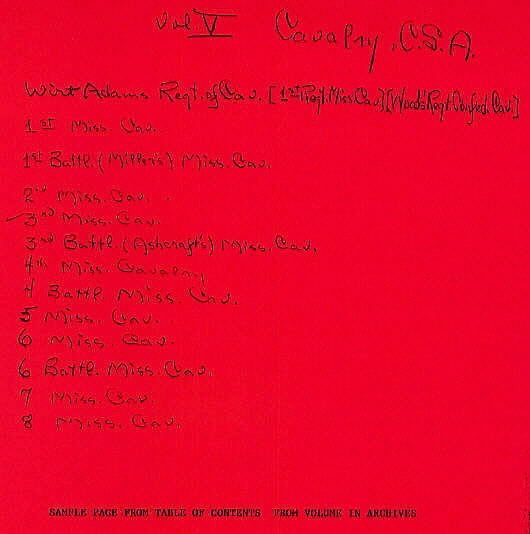 Vol V Cavalry, C.S.A.
Wirt Adams Regt. of Cav. [1st Regt. Miss. Cav.] [Wood's Regt. Confed. Cav.]
1st Miss. Cav.
1st Battl. (Miller's) Miss. Cav.
2nd Miss. Cav.
3rd Miss. Cav.
3rd Battl. (Ashcraft's) Miss. Cav.
4th Miss. Cavalry
4 Battl. Miss. Cav.
5 Miss. Cav.
6 Miss. Cav.
6 Battl. Miss. Cav.
7 Miss. Cav.
8 Miss. Cav.
SAMPLE PAGE FROM TABLE OF CONTENTS FROM VOLUME IN ARCHIVES